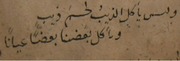 وليس يأكل الذيب لحم ذيب
ويأكل بعضنا بعضا عيانا